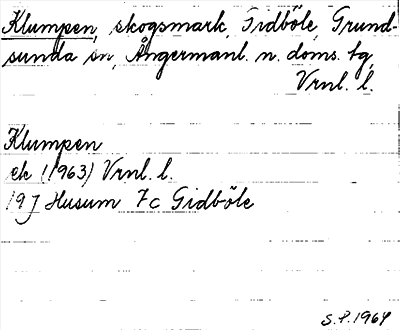 Klumpen, skogsmark, Gidböle, Grund-
sunda sn, Ångermanl. n. doms. tg,
Vrnl. l.
Klumpen
ek (1963) Vrnl. l.
19J Husum 7c Gidböle
S.P. 1964